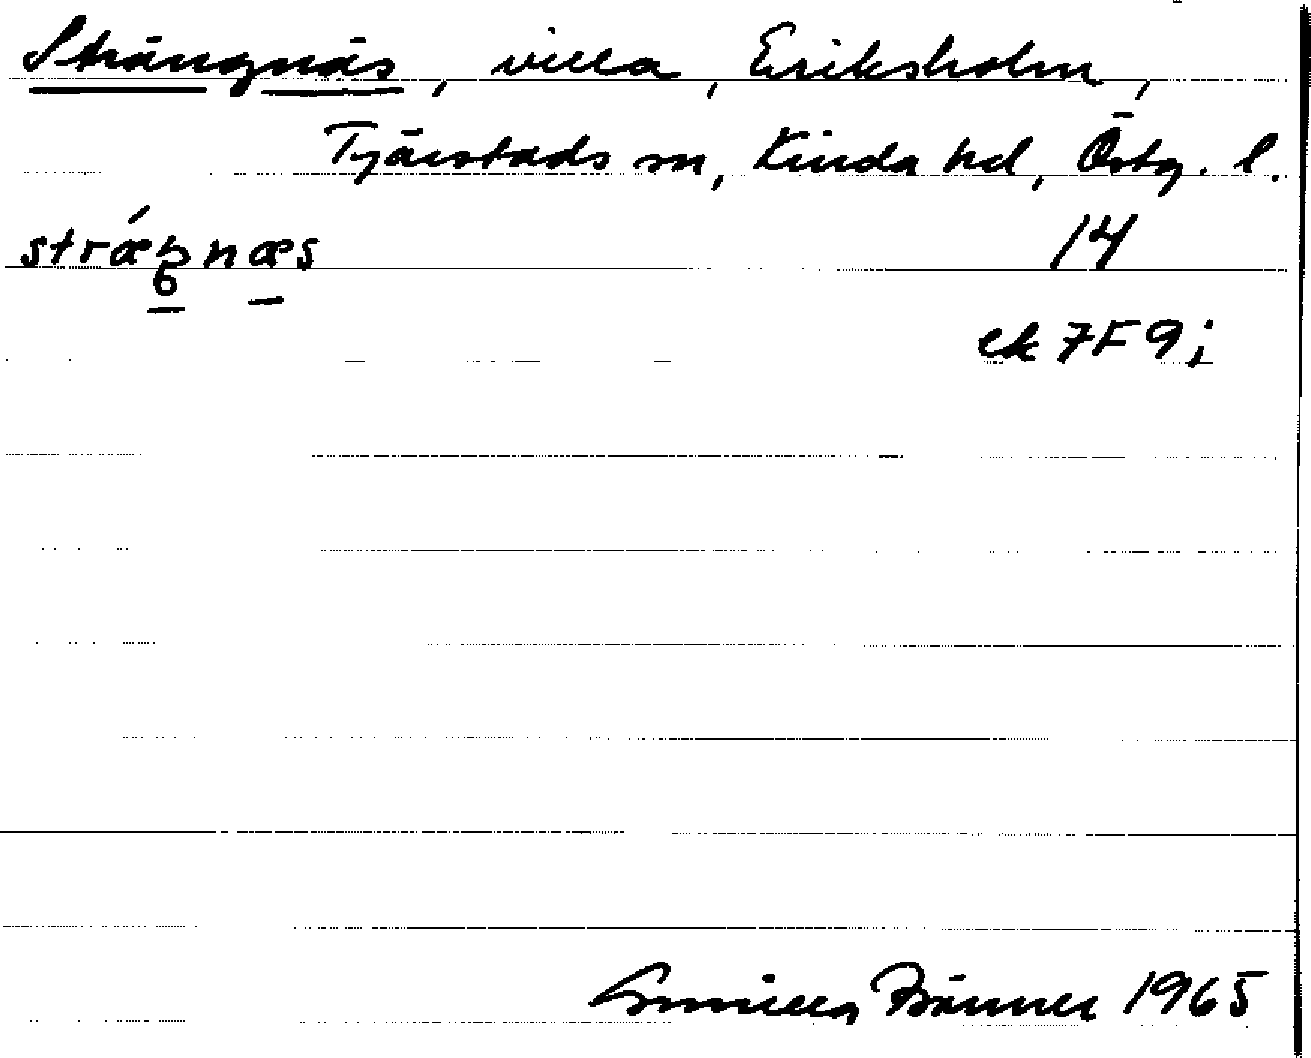 Strängnäs, villa, Eriksholm,
Tjärstads sn, Kinda hd, Östg. l.
strǽŋnæs 14
6
ek 7F 9 i
Gunilla Bänner 1965